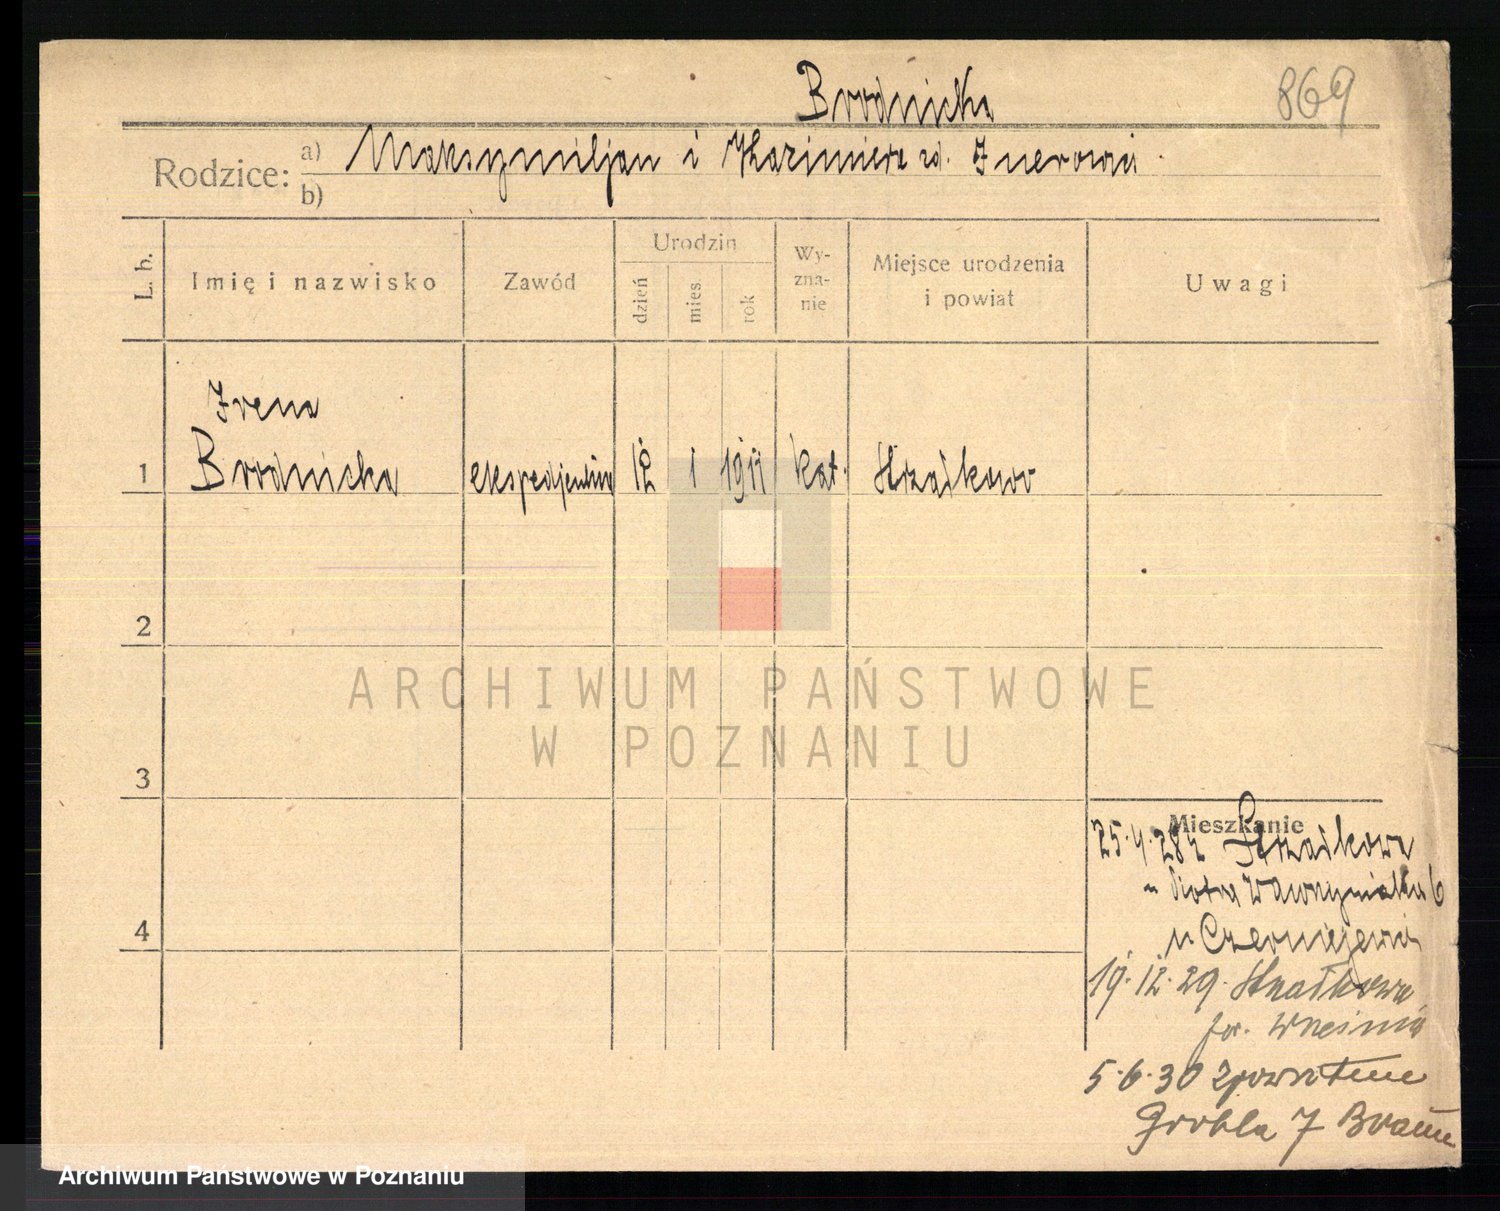 Brodnicka
869
Rodzice: a) Maksymiljan i Kazimiera zd.
b)
L. b. Imię i nazwisko Zawód Urodzin dzień mies. rok Wy-zna-nie Miejsce urodzenia i powiat Uwagi
Irena
1 Brodnicka ekspedjentka 12 1 1911 kat. Strzałkowo
2
ARCHIWUM PAŃSTWOWE
W POZNANIU
3
Mieszkanie
25.4.28 z Strzałkowa
Piotra Wawrzyniaka 6
u
4
19.12.29. Strzałkowo
pow. Września
5.6.30 zpowrotem
Grobla 7 Braun
Archiwum Państwowe w Poznaniu